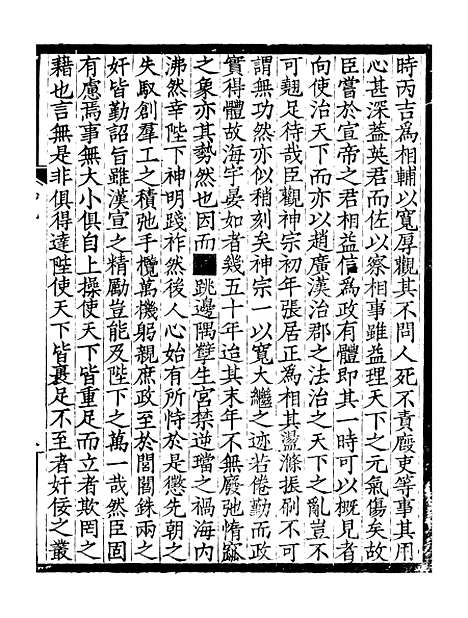 時丙吉為相輔以寬厚觀其不問人死不責廢吏等事其用
心甚深葢英君而佐以察相事雖益理天下之元氣傷矣故
臣嘗於宣帝之君相益信為政有體即其一時可以概見者
向使治天下而亦以趙廣漢治郡之法治之天下之亂豈不
可翹足待哉臣觀神宗初年張居正為相其盪滌振刷不可
謂無功然亦似稍刻矣神宗一以寬大繼之迹若倦勤而政
實得體故海宇晏如者幾五十年迨其末年不無廢弛惰窳
之象亦其勢然也因而跳邊隅孽生宮禁逆璫之禍海内
沸然幸陛下神明踐祚然後人心始有所恃於是懲先朝之
失取創羣工之積弛手攬萬機躬親庶政至於閭閻銖兩之
奸皆勤詔旨雖漢宣之精勵豈能及陛下之萬一哉然臣固
有慮焉事無大小俱自上操使天下皆重足而立者欺罔之
藉也言無是非俱得達陛使天下皆裹足不至者奸佞之叢